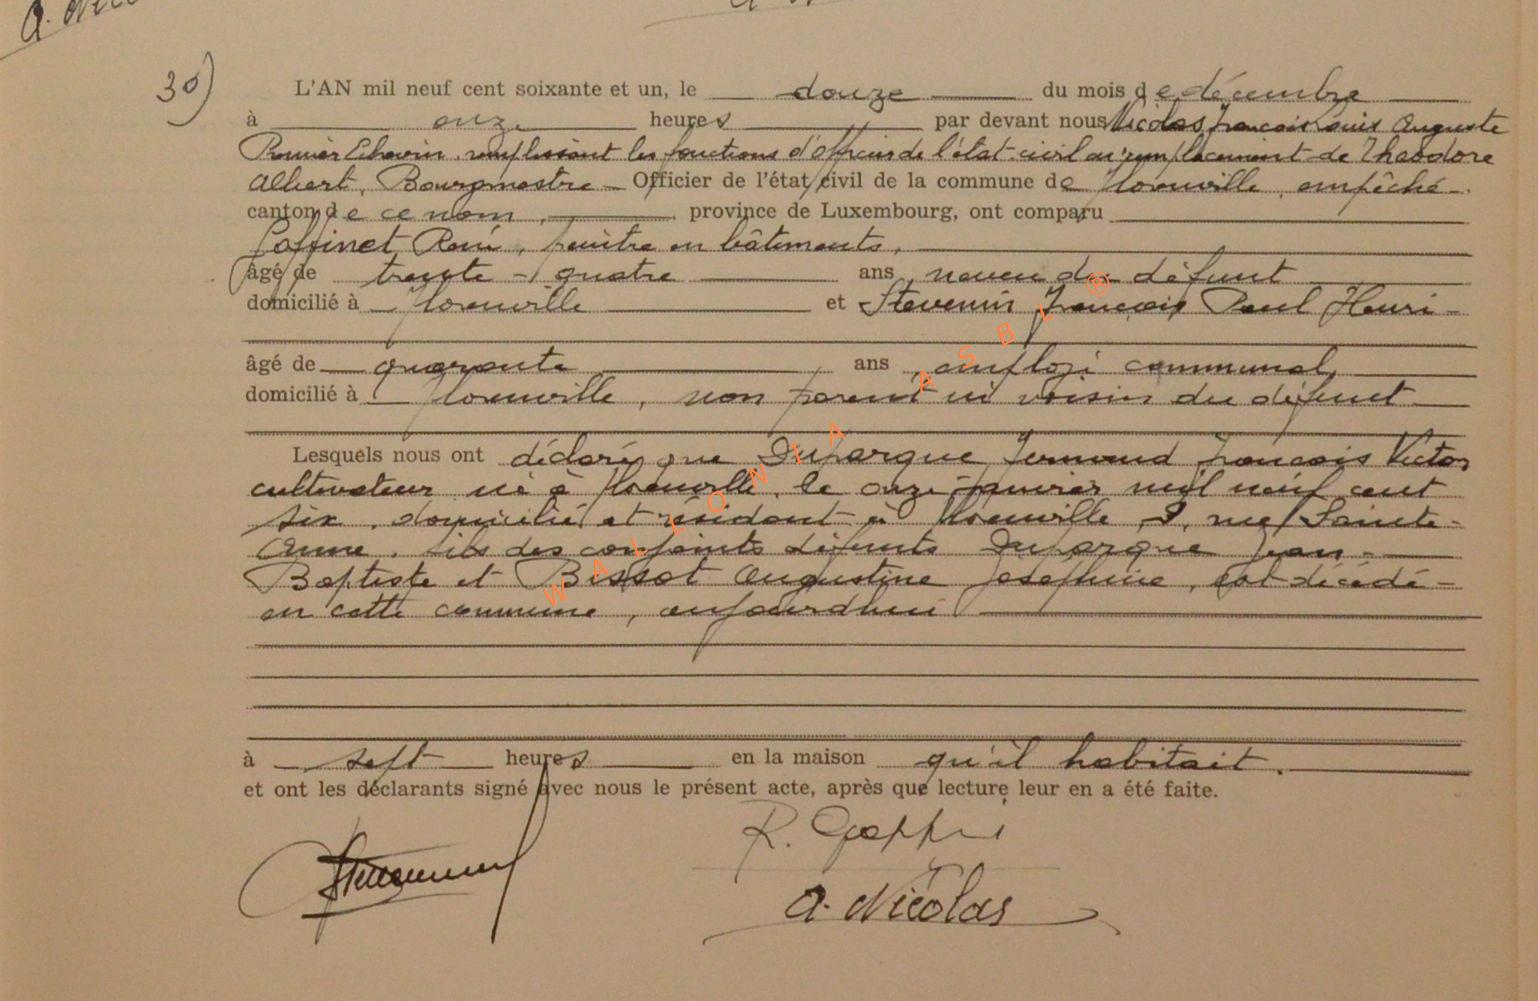 A. Nico
30)
L'AN mil neuf cent soixante et un, le douze du mois de décembre
à onze heures par devant nous Nicolas François Louis Auguste
Premier Echevin remplissant les fonctions d'officier de l'état civil en remplacement de Théodore
Albert, Bourgmestre Officier de l'état civil de la commune de Florenville, empêché
canton de ce nom, province de Luxembourg, ont comparu
Goffinet René, peintre en bâtiments,
âgé de trente-quatre ans neveu du défunt
domicilié à Florenville et Stevenin François Paul Henri
âgé de quarante ans employé communal,
domicilié à Florenville, non parent ni voisin du défunt
Lesquels nous ont déclaré que Duparque Fernand François Victor
cultivateur né à Florenville, le onze janvier mil neuf cent
six, domicilié et résidant à Florenville 8, rue Sainte-
Anne, fils des conjoints défunts Duparque Jean-
Baptiste et Bissot Augustine Joséphine, est décédé
en cette commune, aujourd'hui
à sept heures en la maison qu'il habitait.
et ont les déclarants signé avec nous le présent acte, après que lecture leur en a été faite.
R. Goffinet
A. Nicolas
WALLONIA ASBL ®